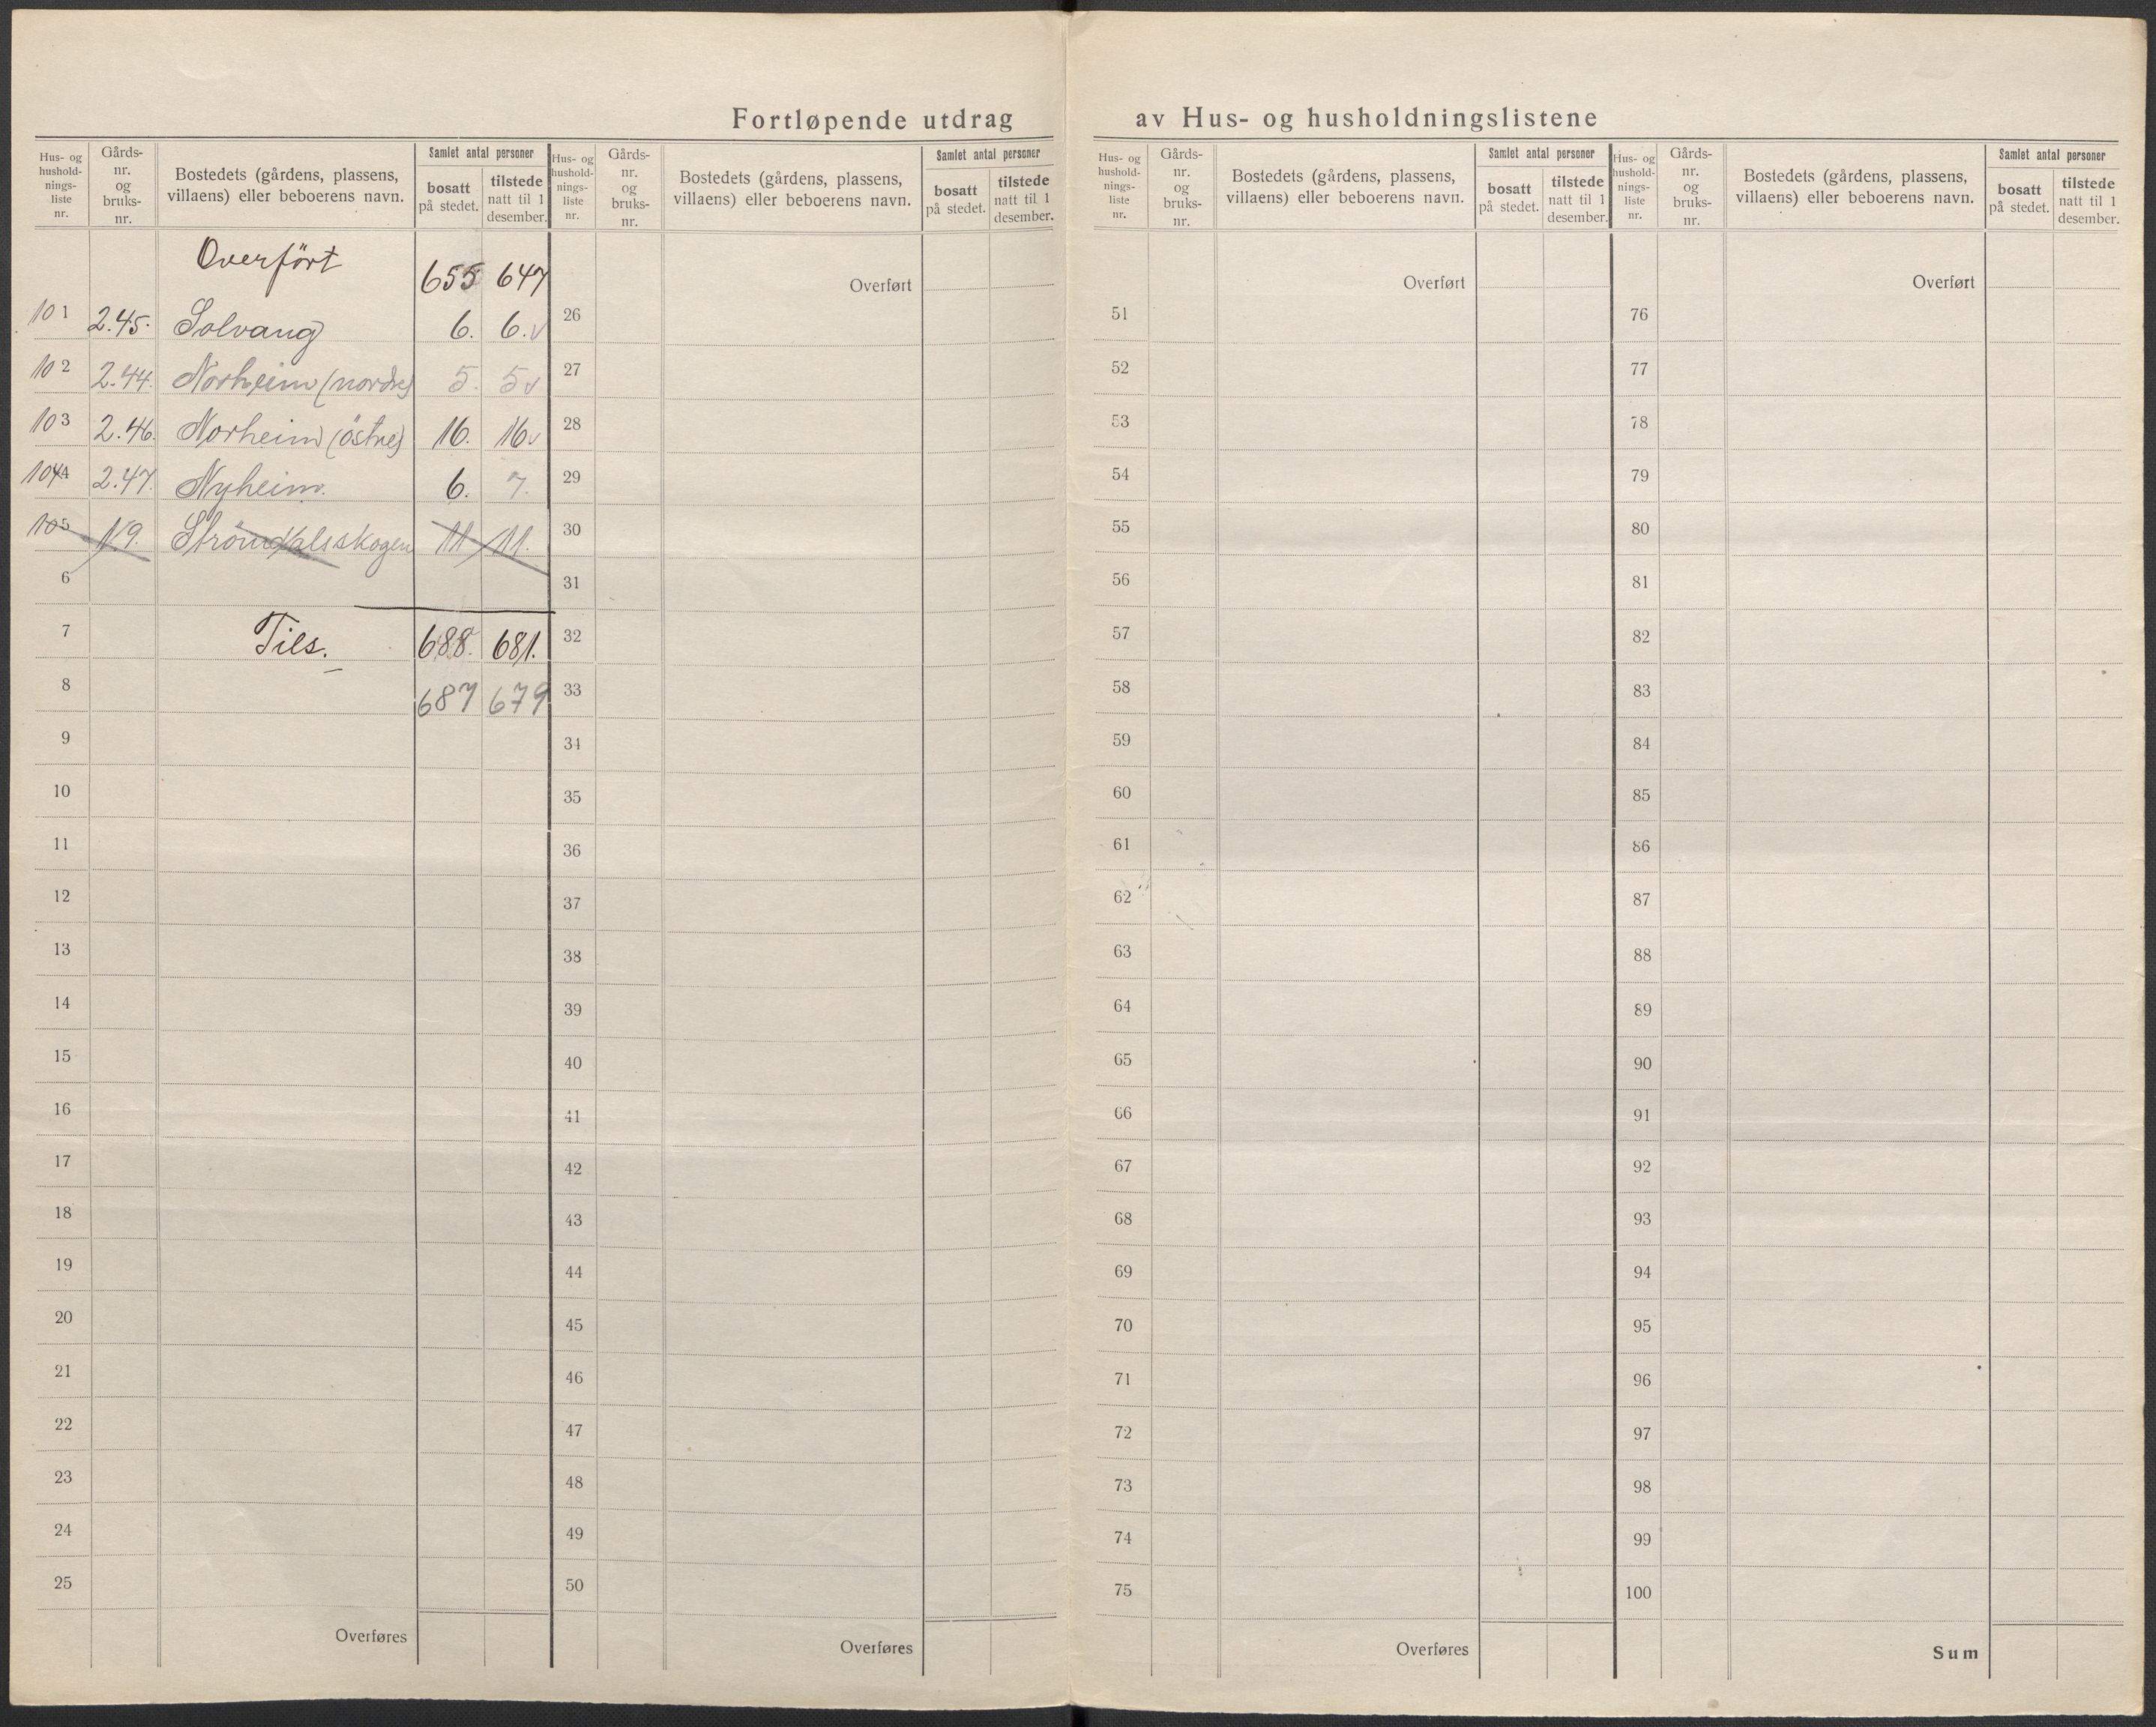 Fortløpende utdrag av Hus- og husholdningslistene
Hus- og
hushold-
nings-
liste
nr.
Gårds-
nr.
og
bruks-
nr.
Bostedets (gårdens, plassens,
villaens) eller beboerens navn.
Samlet antal personer
bosatt
på stedet.
tilstede
natt til 1
desember.
Overfört 655 647
101 2.45. Solvang 6. 6. v
102 2.44. Norheim (nordre) 5. 5 v
103 2.46. Norheim (östre) 16. 16. v
104 2.47. Nyheim. 6. 7.
105 1.9. Strömdalsskogen 11 11.
6
7 Tils. 688. 681.
8 687 679
9
10
11
12
13
14
15
16
17
18
19
20
21
22
23
24
25
Overføres
Hus- og
hushold-
nings-
liste
nr.
Gårds-
nr.
og
bruks-
nr.
Bostedets (gårdens, plassens,
villaens) eller beboerens navn.
Samlet antal personer
bosatt
på stedet.
tilstede
natt til 1
desember.
Overført
26
27
28
29
30
31
32
33
34
35
36
37
38
39
40
41
42
43
44
45
46
47
48
49
50
Overføres
Hus- og
hushold-
nings-
liste
nr.
Gårds-
nr.
og
bruks-
nr.
Bostedets (gårdens, plassens,
villaens) eller beboerens navn.
Samlet antal personer
bosatt
på stedet.
tilstede
natt til 1
desember.
Overført
51
52
53
54
55
56
57
58
59
60
61
62
63
64
65
66
67
68
69
70
71
72
73
74
75
Overføres
Hus- og
hushold-
nings-
liste
nr.
Gårds-
nr.
og
bruks-
nr.
Bostedets (gårdens, plassens,
villaens) eller beboerens navn.
Samlet antal personer
bosatt
på stedet.
tilstede
natt til 1
desember.
Overført
76
77
78
79
80
81
82
83
84
85
86
87
88
89
90
91
92
93
94
95
96
97
98
99
100
Sum